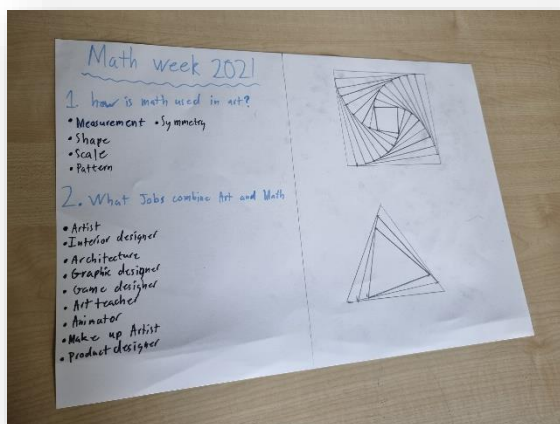 Math week 2021
1. how is math used in art?
• Measurement • Symmetry
• Shape
• Scale
• Pattern
2. What Jobs combine Art and Math
• Artist
• Interior designer
• Architecture
• Graphic designer
• Game designer
• Art teacher
• Animator
• Make up Artist
• product designer